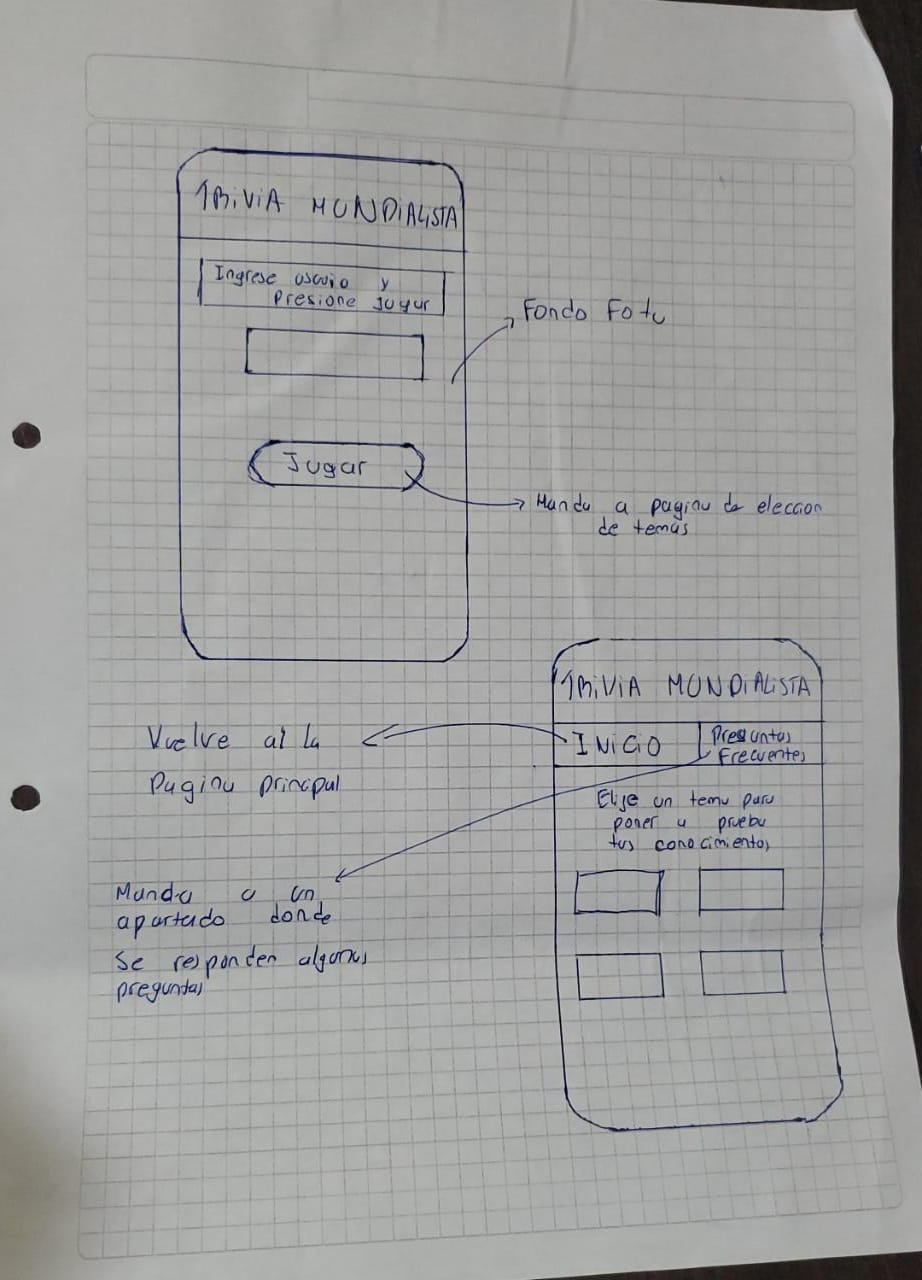 TRIVIA MUNDIALISTA
Ingrese usuario y
Presione Jugar
Fondo Foto
Jugar
Manda a pagina de eleccion
de temas
TRIVIA MUNDIALISTA
INICIO
Preguntas
Frecuentes
Vuelve al la
Pagina principal
Elije un tema para
poner a prueba
tus conocimientos
Manda a un
apartado donde
Se responden algunas
preguntas